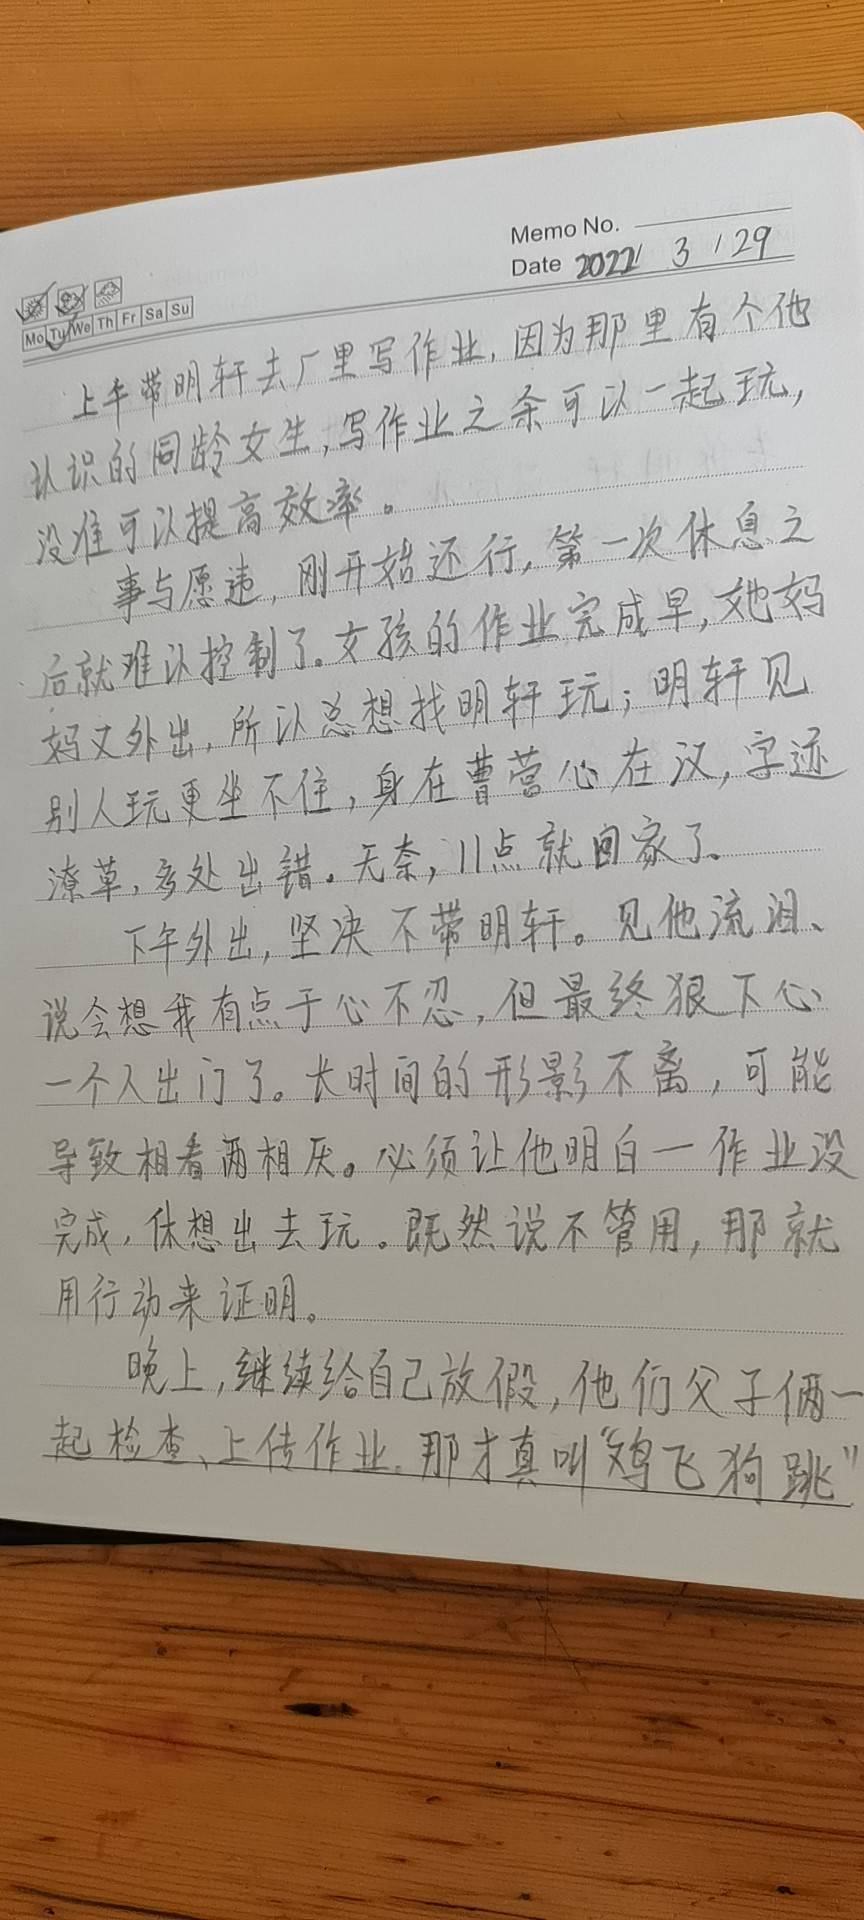 Memo No.
Date 2022 / 3 / 29
Mo Tu We Th Fr Sa Su
上午带明轩去厂里写作业，因为那里有个他
认识的同龄女生，写作业之余可以一起玩，
没准可以提高效率。
事与愿违，刚开始还行，第一次休息之
后就难以控制了。女孩的作业完成早，她妈
妈又外出，所以总想找明轩玩；明轩见
别人玩更坐不住，身在曹营心在汉，字迹
潦草，多处出错。无奈，11点就回家了。
下午外出，坚决不带明轩。见他流泪、
说会想我有点于心不忍，但最终狠下心
一个人出门了。长时间的形影不离，可能
导致相看两相厌。必须让他明白一作业没
完成，休想出去玩。既然说不管用，那就
用行动来证明。
晚上，继续给自己放假，他们父子俩一
起检查、上传作业，那才真叫“鸡飞狗跳”